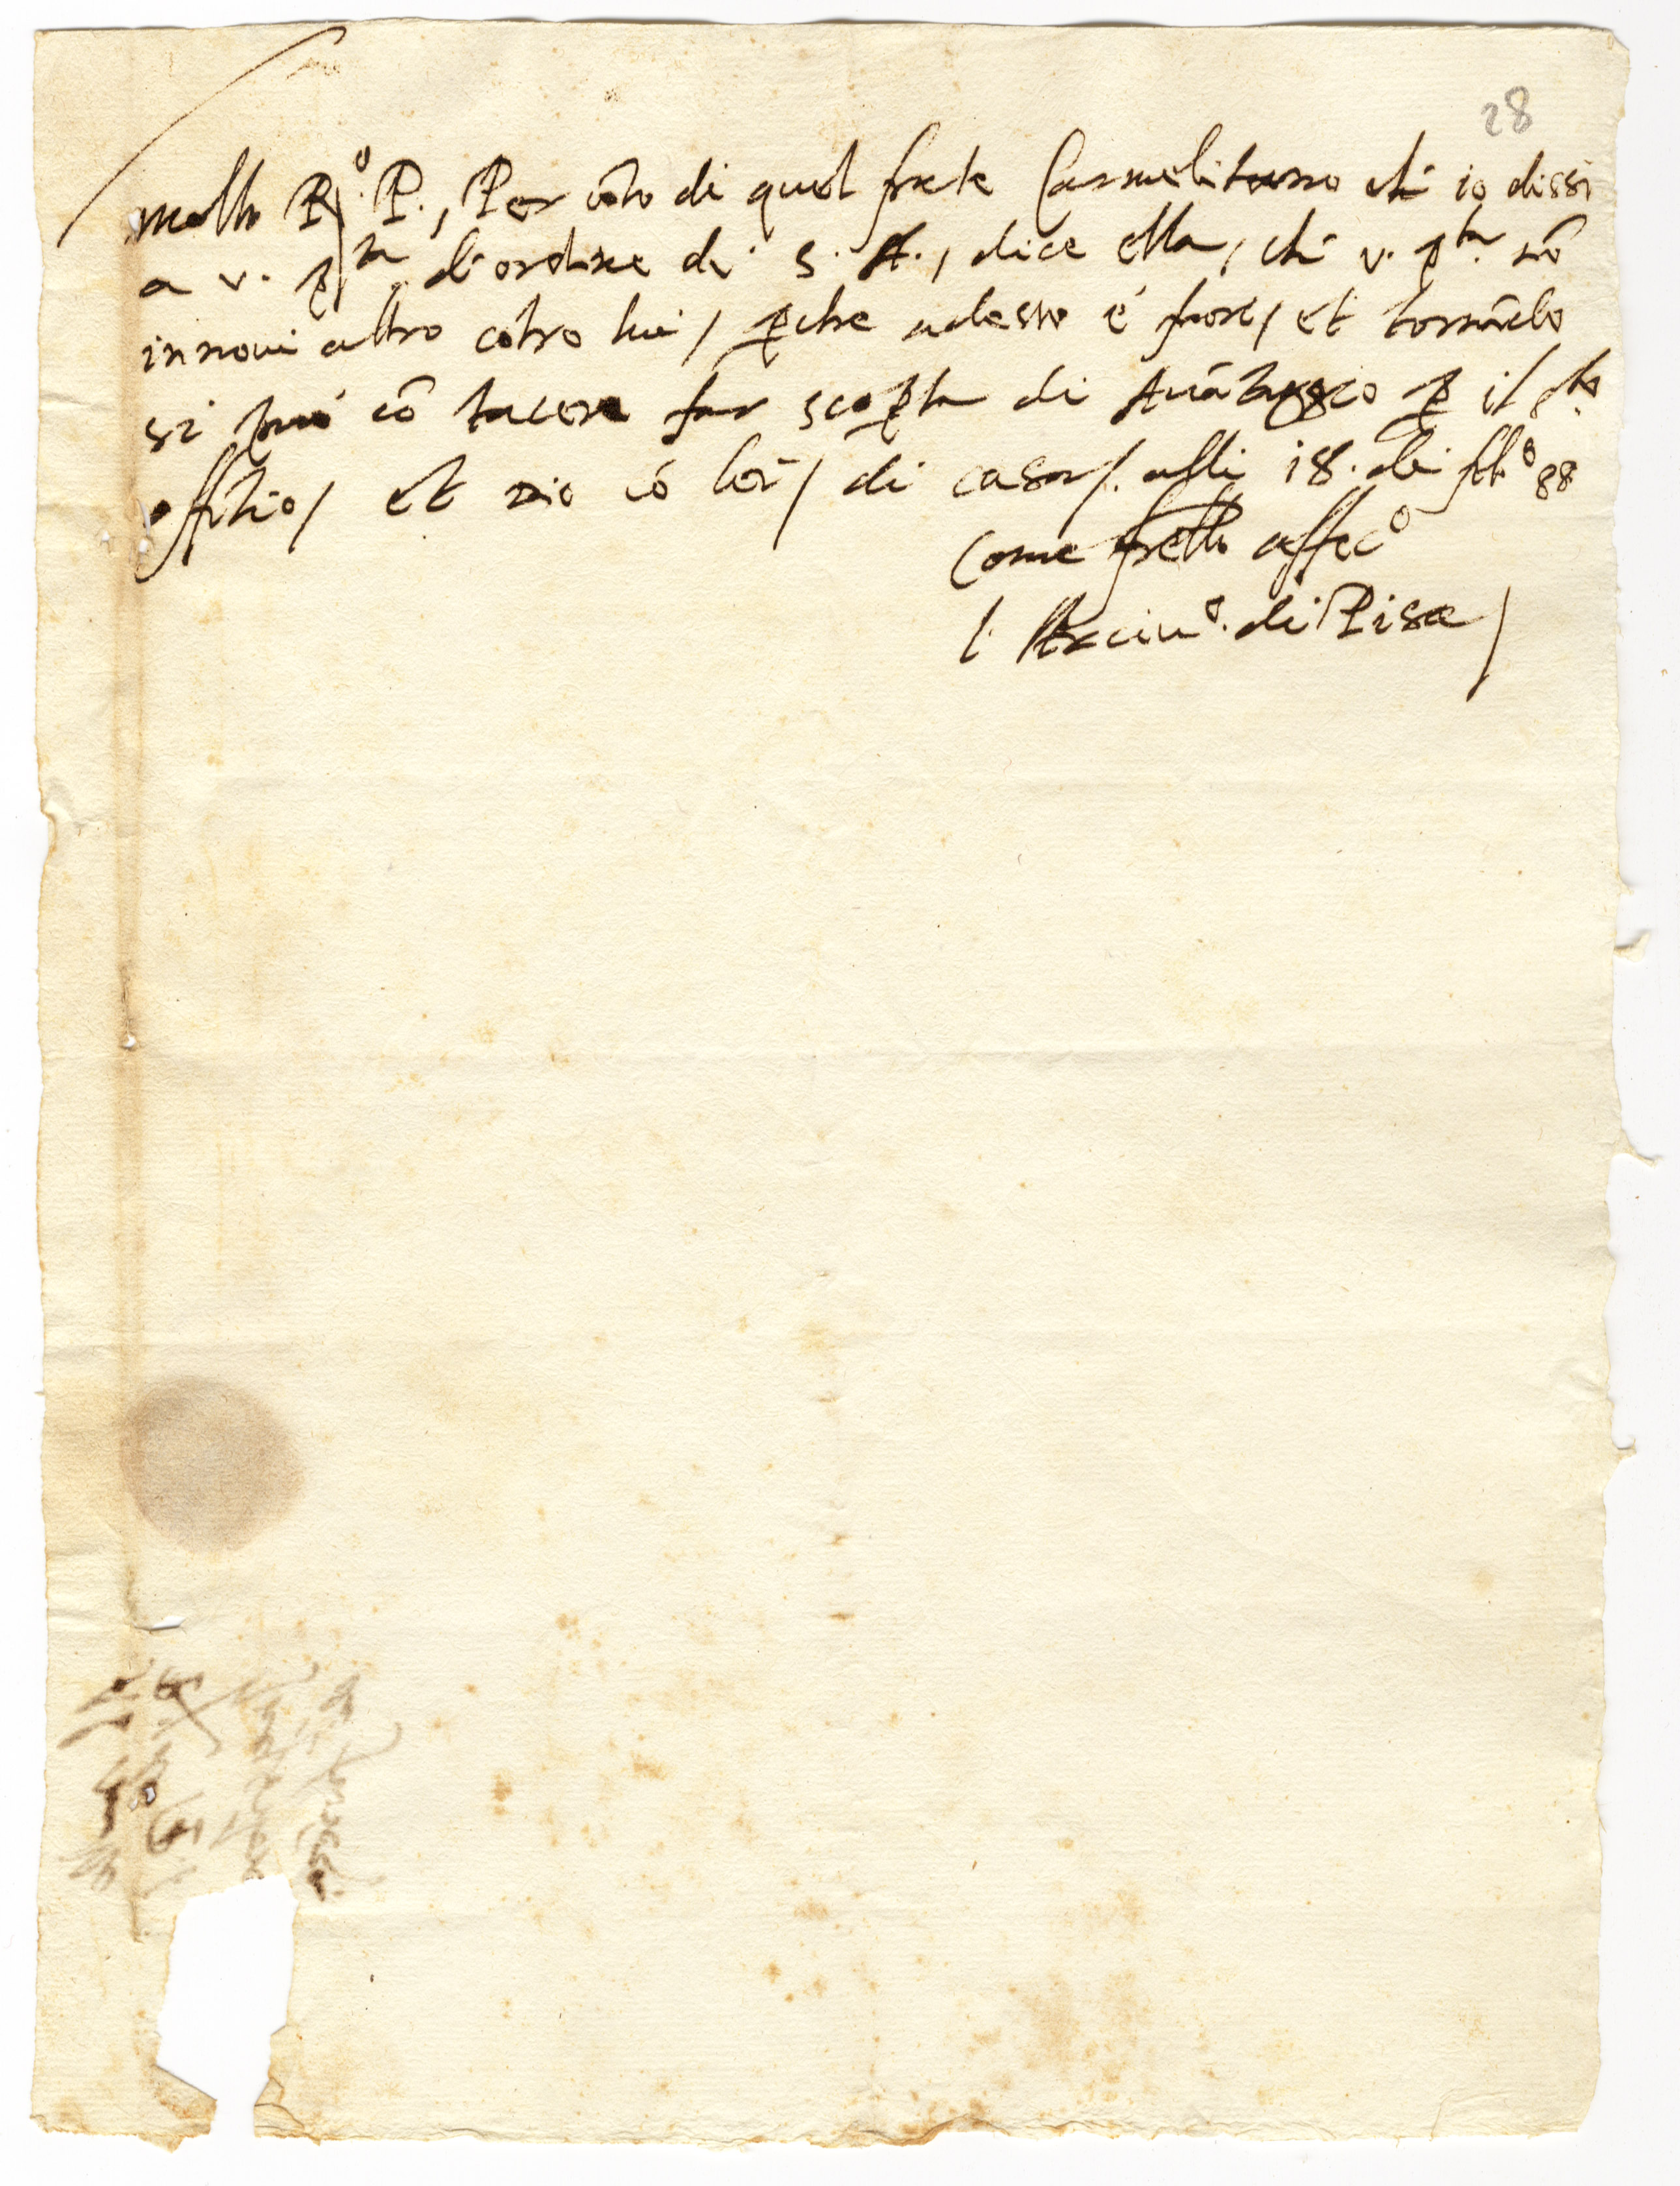 28
molto R.° P., Per cōto di quel frate Carmelitano che io dissi
a v. p.ta d'ordine di S. A., dice ella, che v. p.ta nō
innovi altro cōtro lui, p̱che adesso è fuori, et tornādo
si può cō tacere far scop̱ta di Avātaggio p̱ il s.to
offitio, et Dio cō lei, di casa, alli 18. di feb.° 88
Come fr̃ello affec.°
l'Arciv.° di Pisa